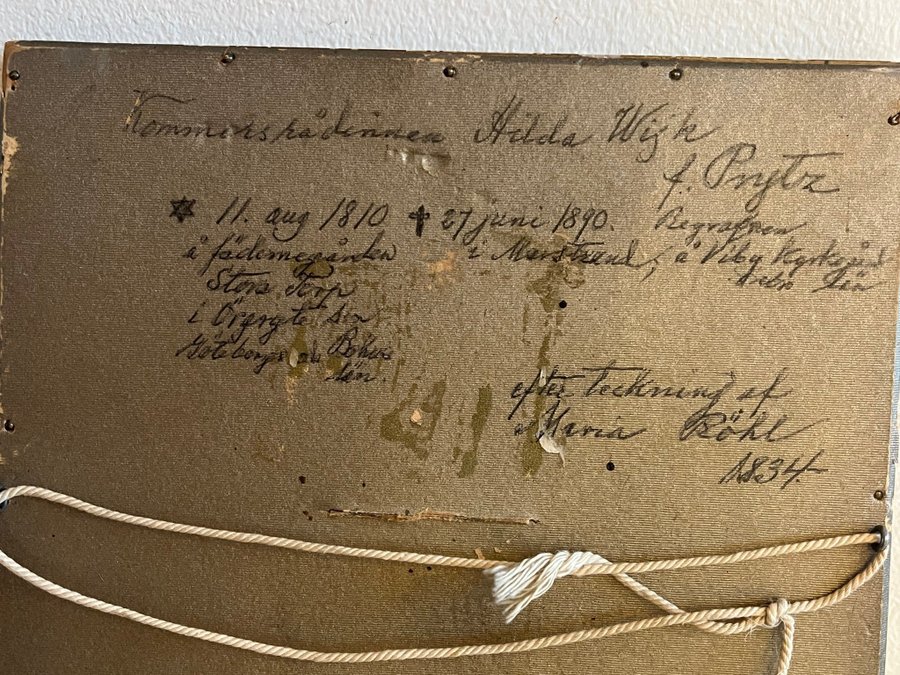 Kommersrådinnan Hilda Wijk
f. Prytz
✡ 11. aug 1810 ✝ 27 juni 1890. Begrafven
å fädernegården i Marstrand, å Viby Kyrkogård
Stora Torp
i Örgryte
Göteborgs och Bohus
län.
efter teckning af
Maria Röhl
1834.